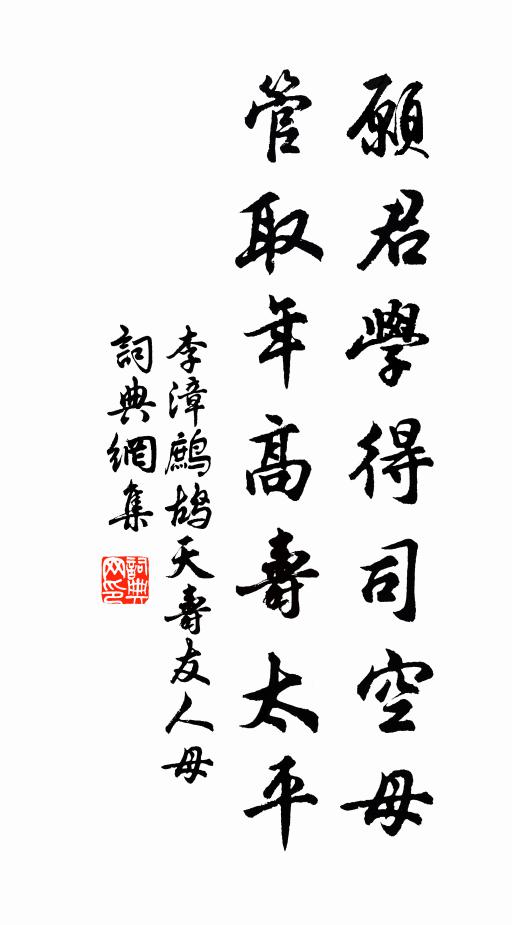 願君學得司空母
管取年高壽太平
李漳鷓鴣天壽友人母
詞典網集
詞典网印